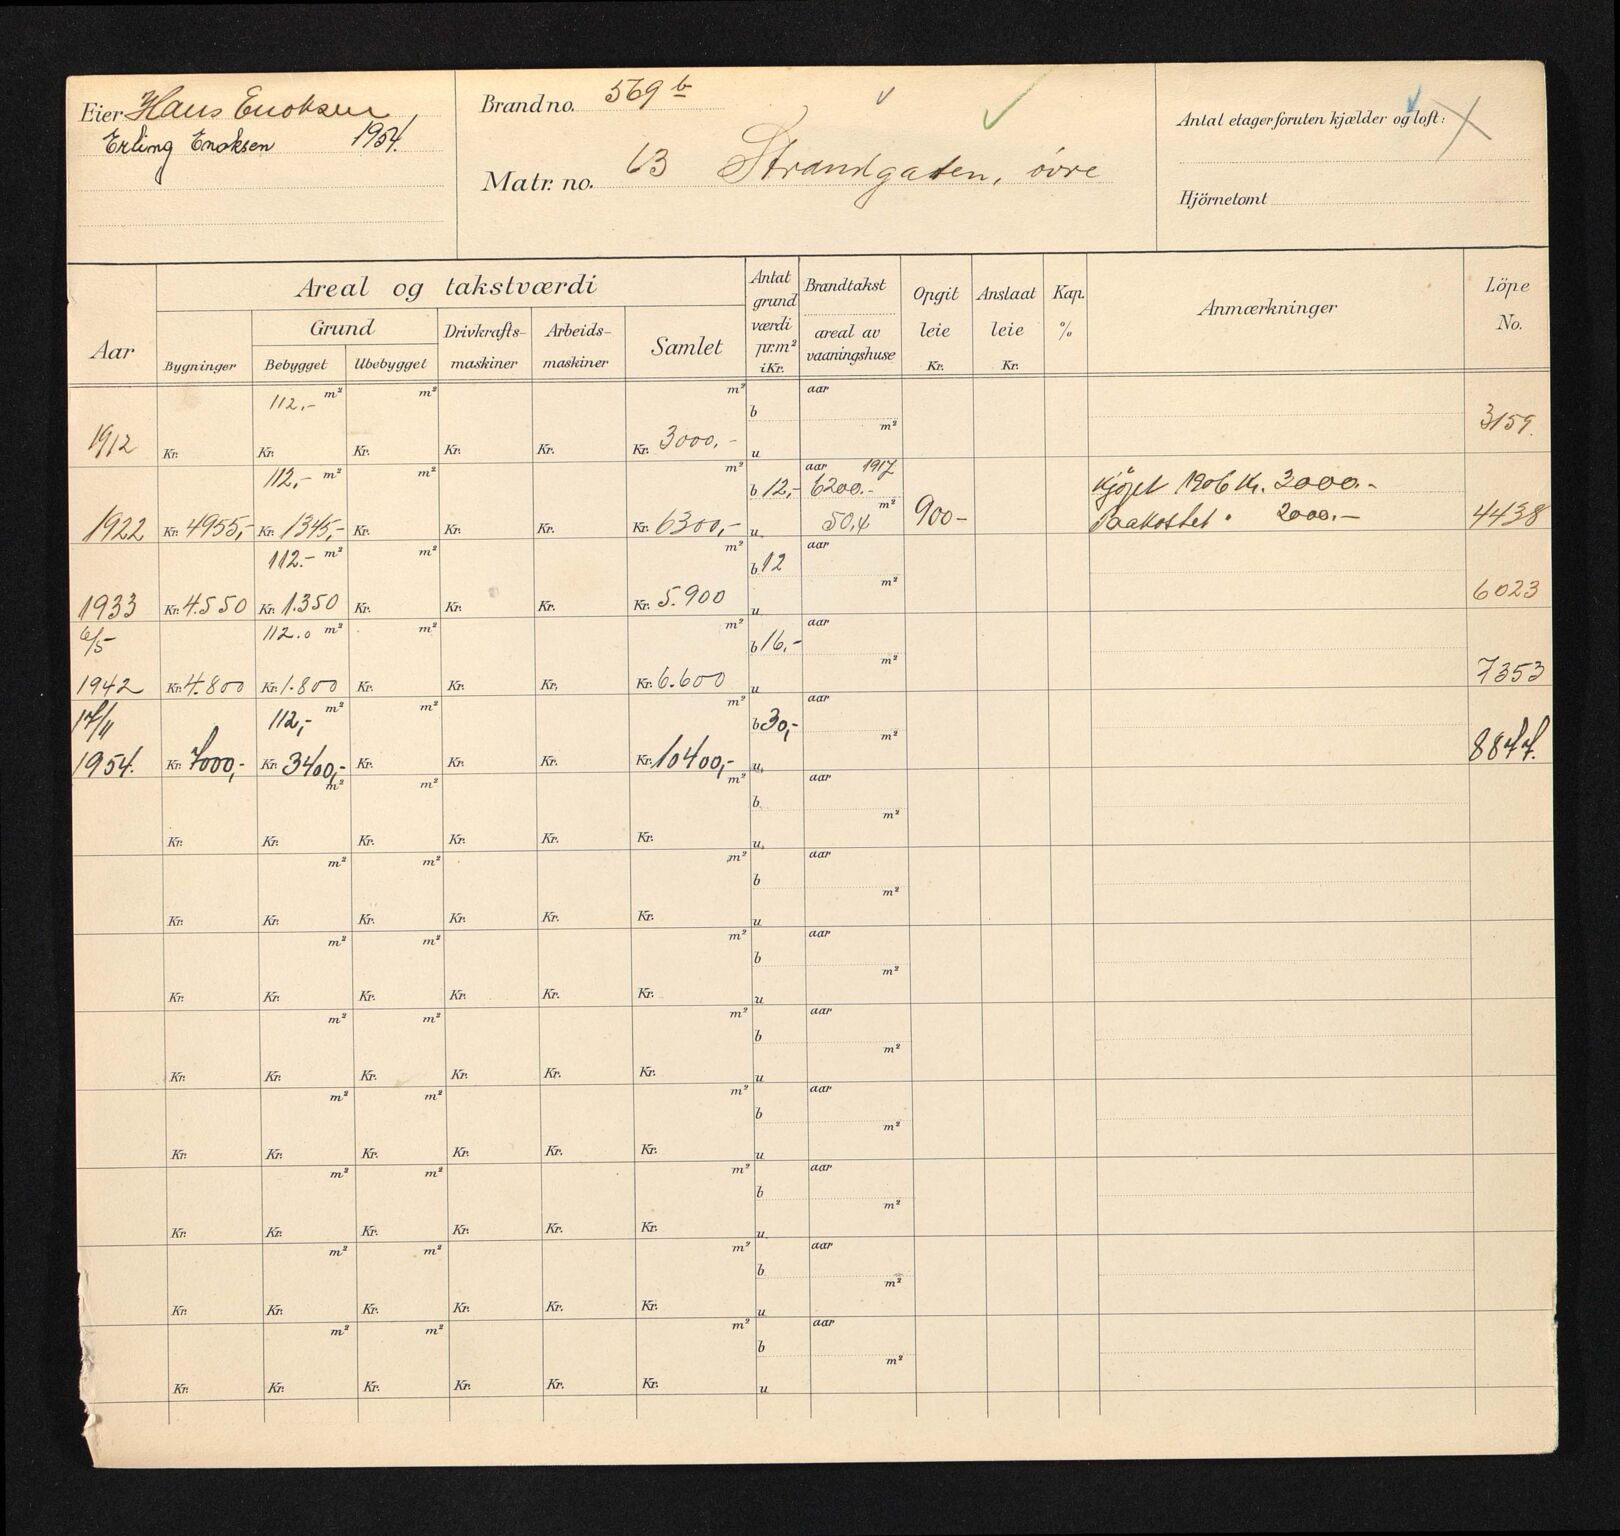 Eier Hans Enoksen
Erling Enoksen 1954.
Brand no. 569 b
Matr. no. 63 Strandgaten, øvre
Antal etager foruten kjælder og loft:
Hjörnetomt
Aar
Areal og takstværdi
Grund
Bygninger
Bebygget
Ubebygget
Drivkrafts-
maskiner
Arbeids-
maskiner
Samlet
Antat
grund
værdi
pr.m²
i Kr.
Brandtakst
areal av
vaaningshuse
Opgit
leie
Kr.
Anslaat
leie
Kr.
Kap.
%
Anmærkninger
Löpe
No.
112.- m² m² m² aar
b m²
1912 Kr. Kr. Kr. Kr. Kr. Kr. 3000.- u 3159.
112,- m² m² m² aar 1917
b 12,- 6200.- m² Kjøpt 1906 Kr. 3000.-
1922 Kr. 4955,- Kr. 1345,- Kr. Kr. Kr. Kr. 6300,- u 50,4 900- Paakostet " 2000.- 4438
112.- m² m² m² aar
b 12 m²
1933 Kr. 4.550 Kr. 1.350 Kr. Kr. Kr. Kr. 5.900 u 6023
6/5 112.0 m² m² m² aar
b 16,- m²
1942 Kr. 4.800 Kr. 1.800 Kr. Kr. Kr. Kr. 6.600 u 7353
17/11 112,- m² m² m² aar
b 30,- m²
1954. Kr. 7000,- Kr. 3400,- Kr. Kr. Kr. Kr. 10400,- u 8877.
m² m² m² aar
b m²
Kr. Kr. Kr. Kr. Kr. Kr. u
m² m² m² aar
b m²
Kr. Kr. Kr. Kr. Kr. Kr. u
m² m² m² aar
b m²
Kr. Kr. Kr. Kr. Kr. Kr. u
m² m² m² aar
b m²
Kr. Kr. Kr. Kr. Kr. Kr. u
m² m² m² aar
b m²
Kr. Kr. Kr. Kr. Kr. Kr. u
m² m² m² aar
b m²
Kr. Kr. Kr. Kr. Kr. Kr. u
m² m² m² aar
b m²
Kr. Kr. Kr. Kr. Kr. Kr. u
m² m² m² aar
b m²
Kr. Kr. Kr. Kr. Kr. Kr. u